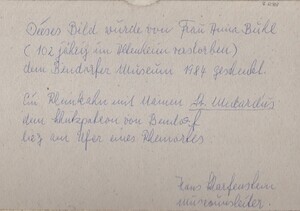 Dieses Bild wurde von Frau Anna Bühl
(102 jährig im Altenheim verstorben)
dem Bendorfer Museum 1984 geschenkt.
Ein Rheinkahn mit Namen St. Medardus
dem Schutzpatron von Bendorf
liegt am Ufer eines Rheinortes
Hans Scharfenstein
Museumsleiter.